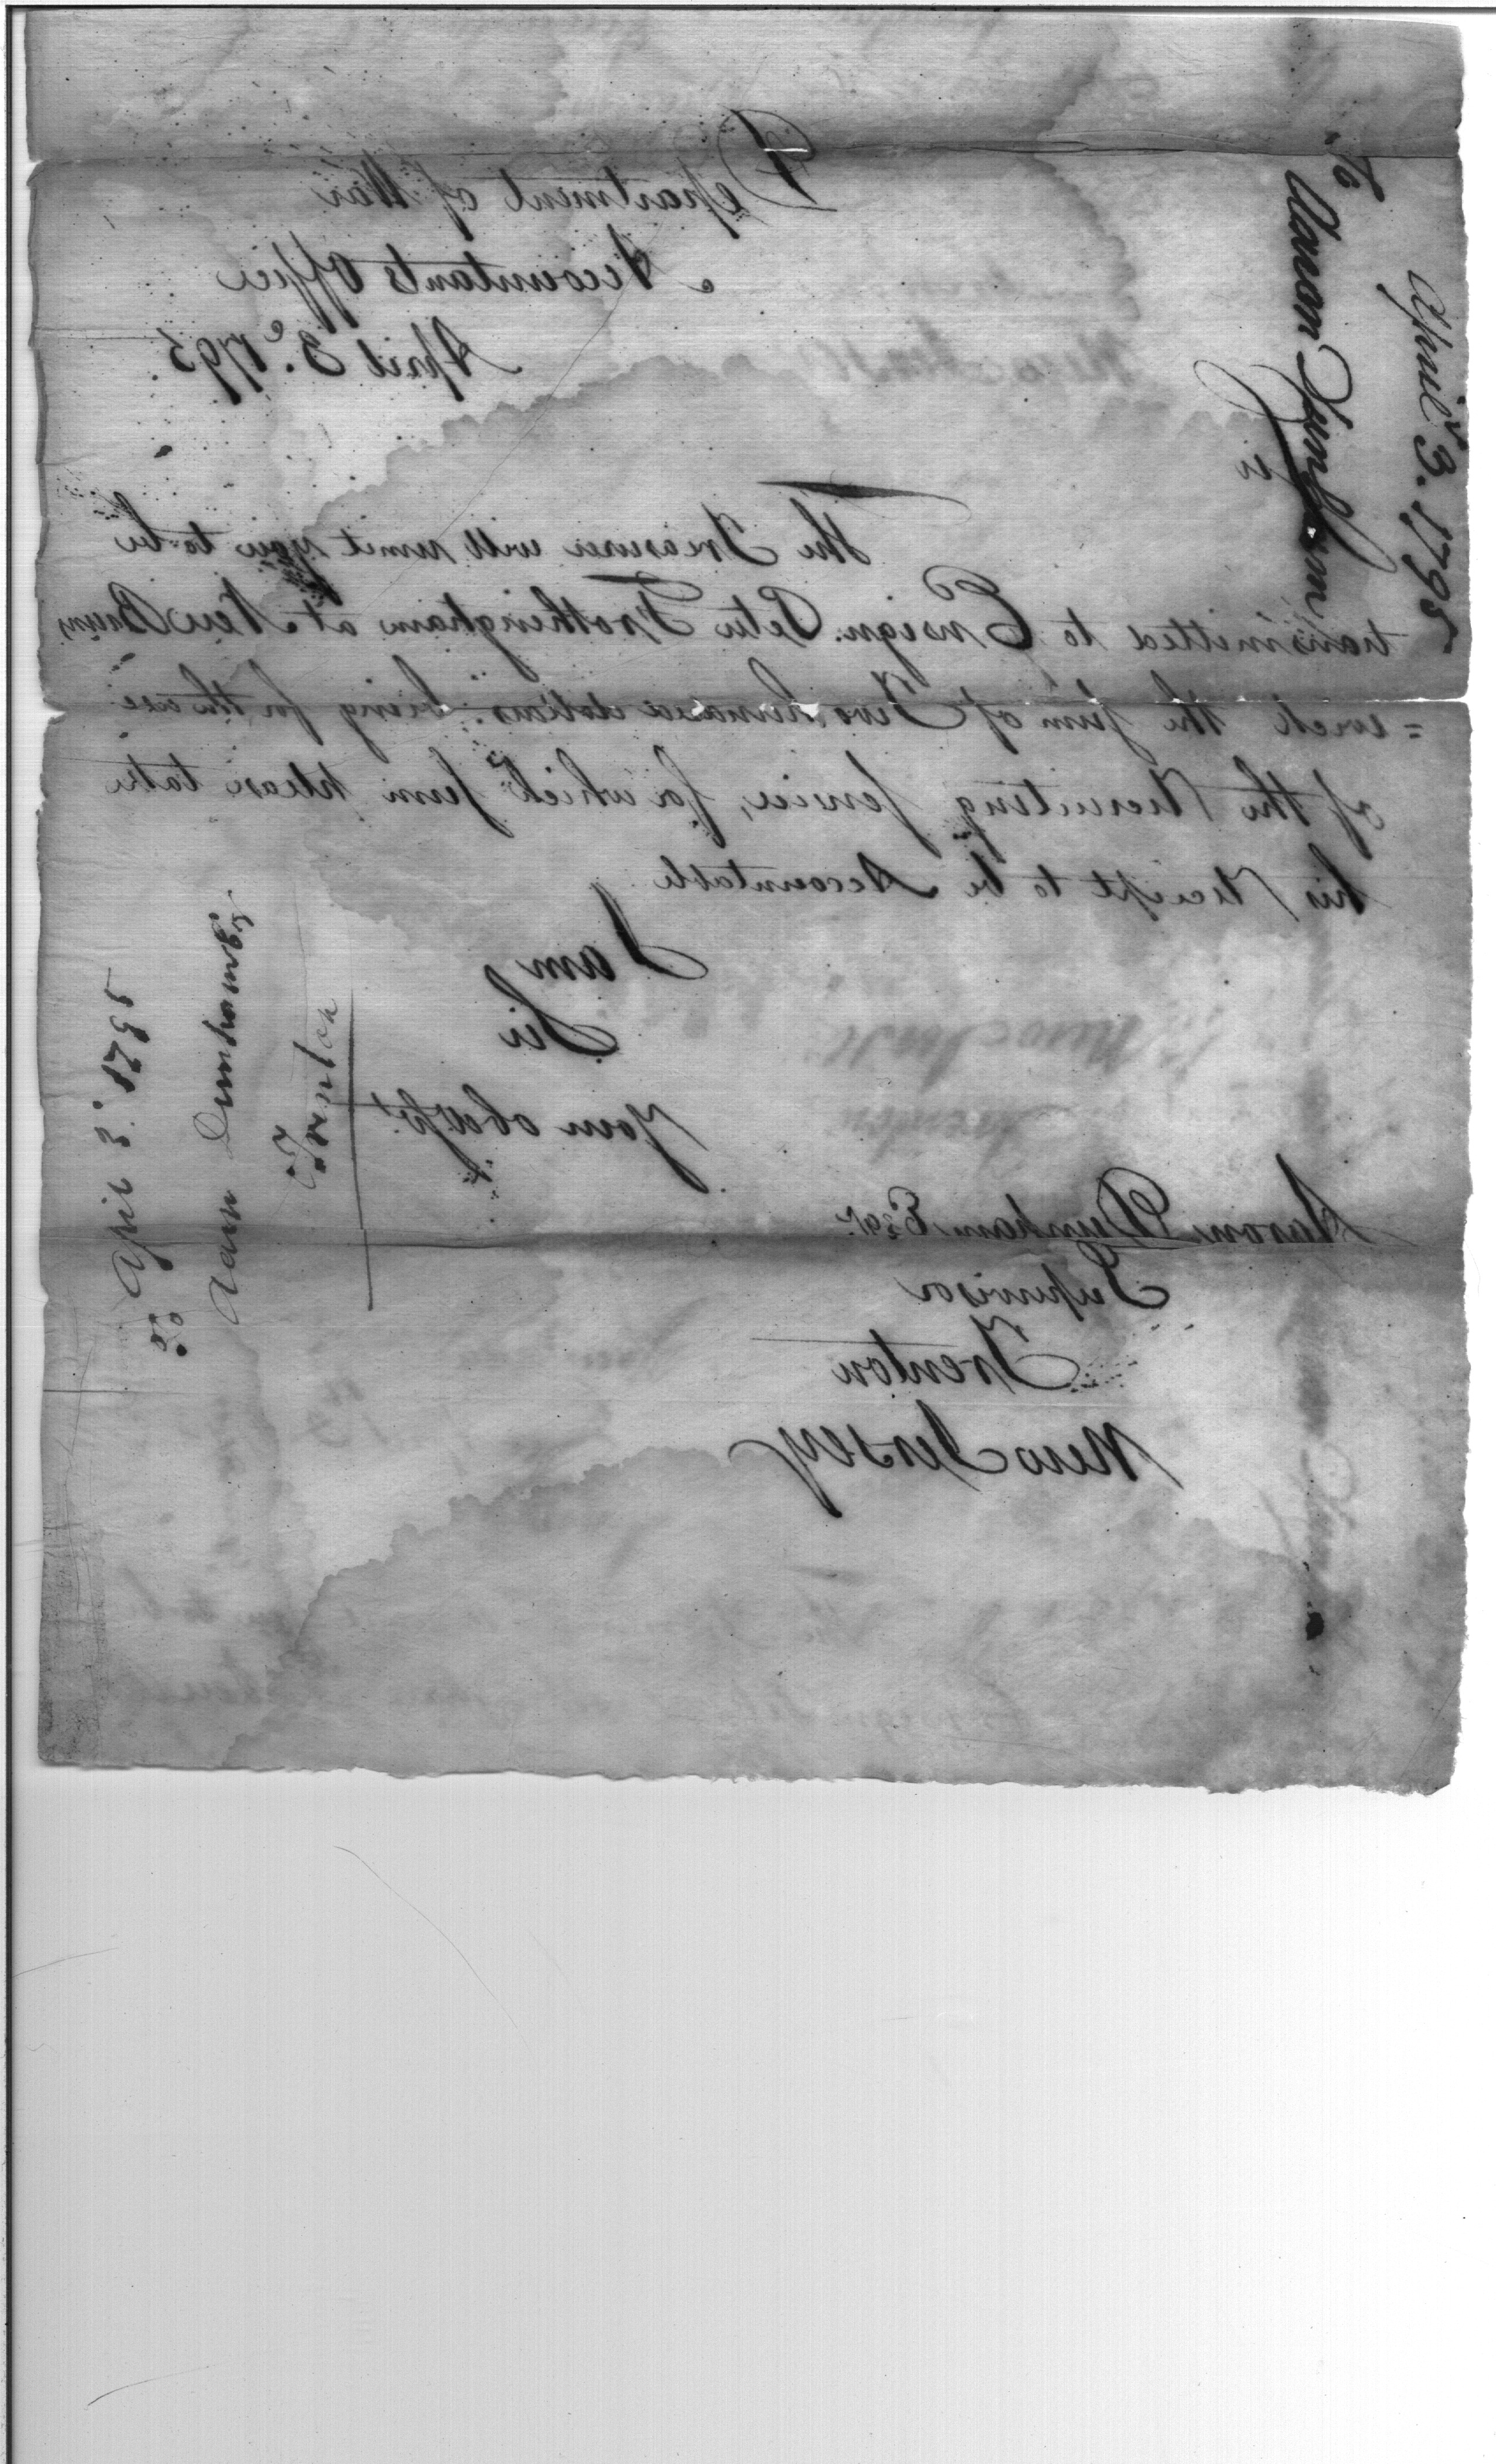 Department of War
Accountants Office
April 3.e 1795.
Sir
The Treasurer will remit you to be
transmitted to Ensign Peter Frothingham at New Bruns
=wick the sum of Two hundred dollars: being for the use
of the Recruiting service, for which sum please take
his Receipt to be Accountable
I am
Sir
Your obd St
Aaron Dunham Esqr.
Supervisor
Trenton
New Jersey
To
Aaron Dunham
April 3. 1795
April 3. 1795
Aaron Dunham Esq
Trenton